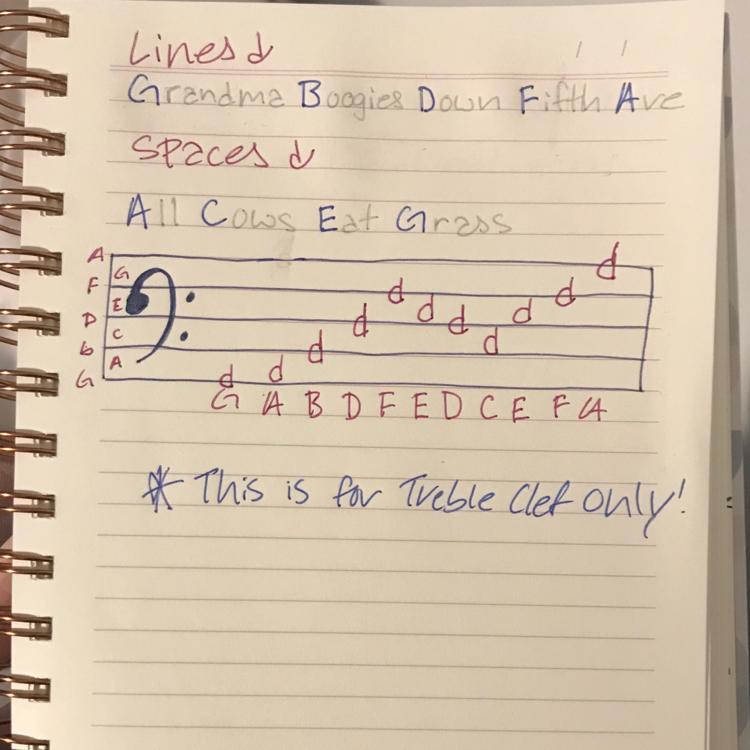 Lines
Grandma Boogies Down Fifth Ave
Spaces
All Cows Eat Grass
A
G
F
E
D
C
b
A
G
G A B D F E D C E F A
* This is for Treble Clef only!